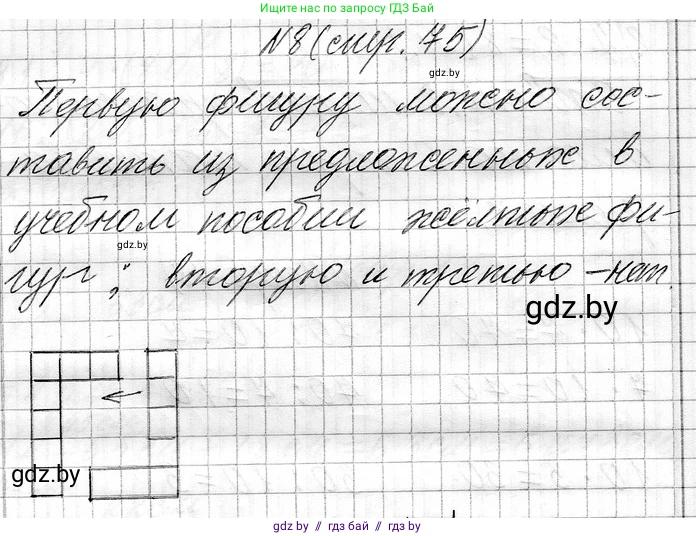 Ищите нас в поиске по запросу ГДЗ Бай
N8 (стр. 75)
gdz.by
Первую фигуру можно сос-
тавить из предложенных в
учебном пособии жёлтых фи-
gdz.by
гур; вторую и третью - нет.
gdz.by
gdz.by
gdz.by // гдз бай // гдз by